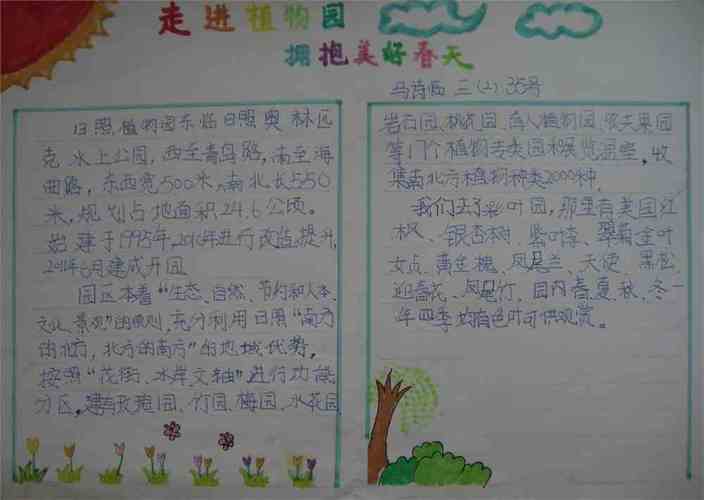 走进植物园
拥抱美好春天
马诗临 三(2) 35号
日照植物园东临日照奥林匹
克水上公园,西至青岛路,南至海
曲路,东西宽500米,南北长550
米,规划占地面积24.6公顷。
始建于1995年,2010年进行改造提升,
2011年6月建成开园
园区本着“生态、自然、节约和人本、
文化、景观”的原则,充分利用日照“南方
的北方,北方的南方”的地域优势,
按照“花街、水岸、文轴”进行功能
分区,建有玫瑰园、竹园、梅园、水花园、
岩石园、桃花园、盲人植物园、农夫果园
等17个植物专类园和展览温室,收
集南北方植物种类2000种。
我们去了彩叶园,那里有美国红
枫、银杏树、紫叶李、金叶
女贞、黄金槐、凤尾兰、天使、黑松、
迎春花、凤尾竹,园内春、夏、秋、冬一
年四季均有色叶可供观赏。